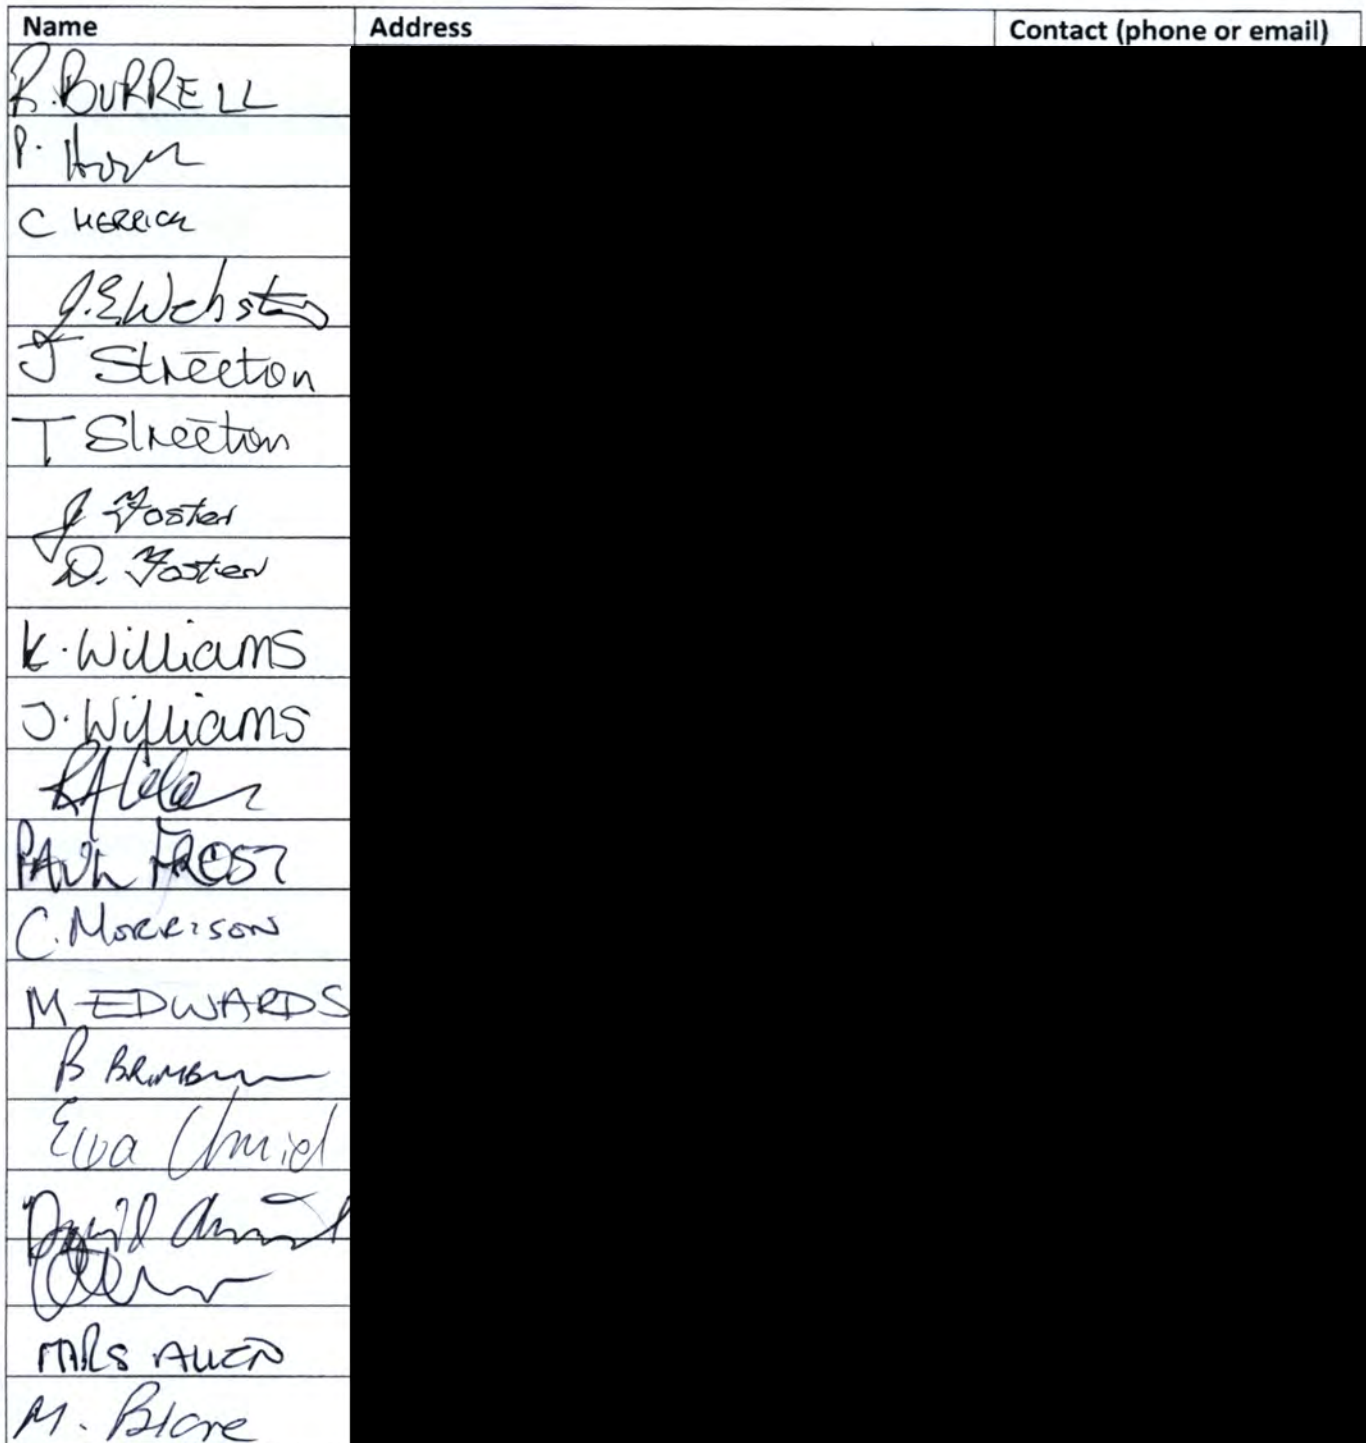 Name Address Contact (phone or email)
R. BURRELL
P.
C HERRICK
J.E Webster
J Streeton
T Streeton
J Foster
D. Foster
K. Williams
J. Williams
PAUL FROST
C. MORRISON
M EDWARDS
B
Ewa Chmiel
David Chmiel
MRS ALLEN
M. Blore